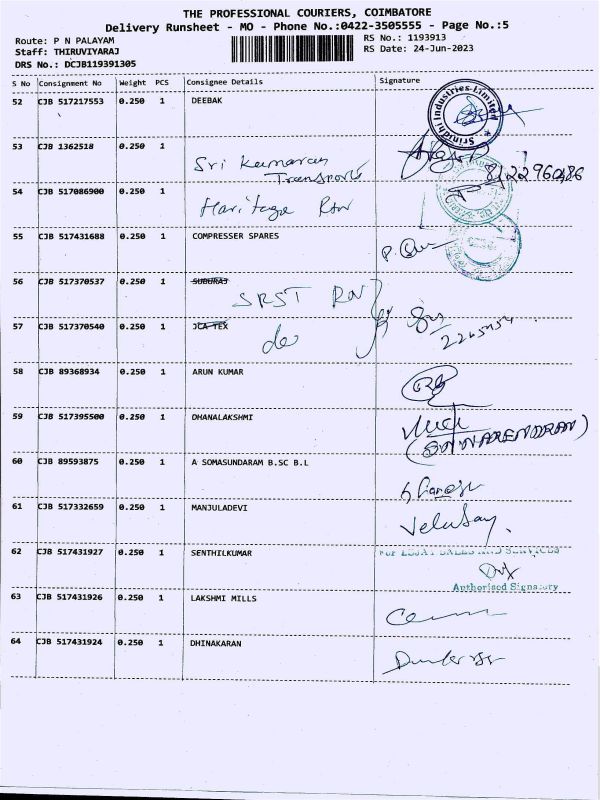 THE PROFESSIONAL COURIERS, COIMBATORE
Delivery Runsheet - MO - Phone No.:0422-3505555 - Page No.:5
Route: P N PALAYAM RS No.: 1193913
Staff: THIRUVIYARAJ RS Date: 24-Jun-2023
DRS No.: DCJB119391305
S No Consignment No Weight PCS Consignee Details Signature
52 CJB 517217553 0.250 1 DEEBAK
Srinidhi Industries Limited
53 CJB 1362518 0.250 1
Sri Kumaran
Transports
54 CJB 517086900 0.250 1
Haritage RN
55 CJB 517431688 0.250 1 COMPRESSER SPARES
56 CJB 517370537 0.250 1 SUBURAJ
SRST RN
57 CJB 517370540 0.250 1 JCA TEX
do
58 CJB 89368934 0.250 1 ARUN KUMAR
59 CJB 517395500 0.250 1 DHANALAKSHMI
60 CJB 89593875 0.250 1 A SOMASUNDARAM B.SC B.L
61 CJB 517332659 0.250 1 MANJULADEVI
62 CJB 517431927 0.250 1 SENTHILKUMAR
SALES AND SERVICES
Authorised Signatory
63 CJB 517431926 0.250 1 LAKSHMI MILLS
64 CJB 517431924 0.250 1 DHINAKARAN